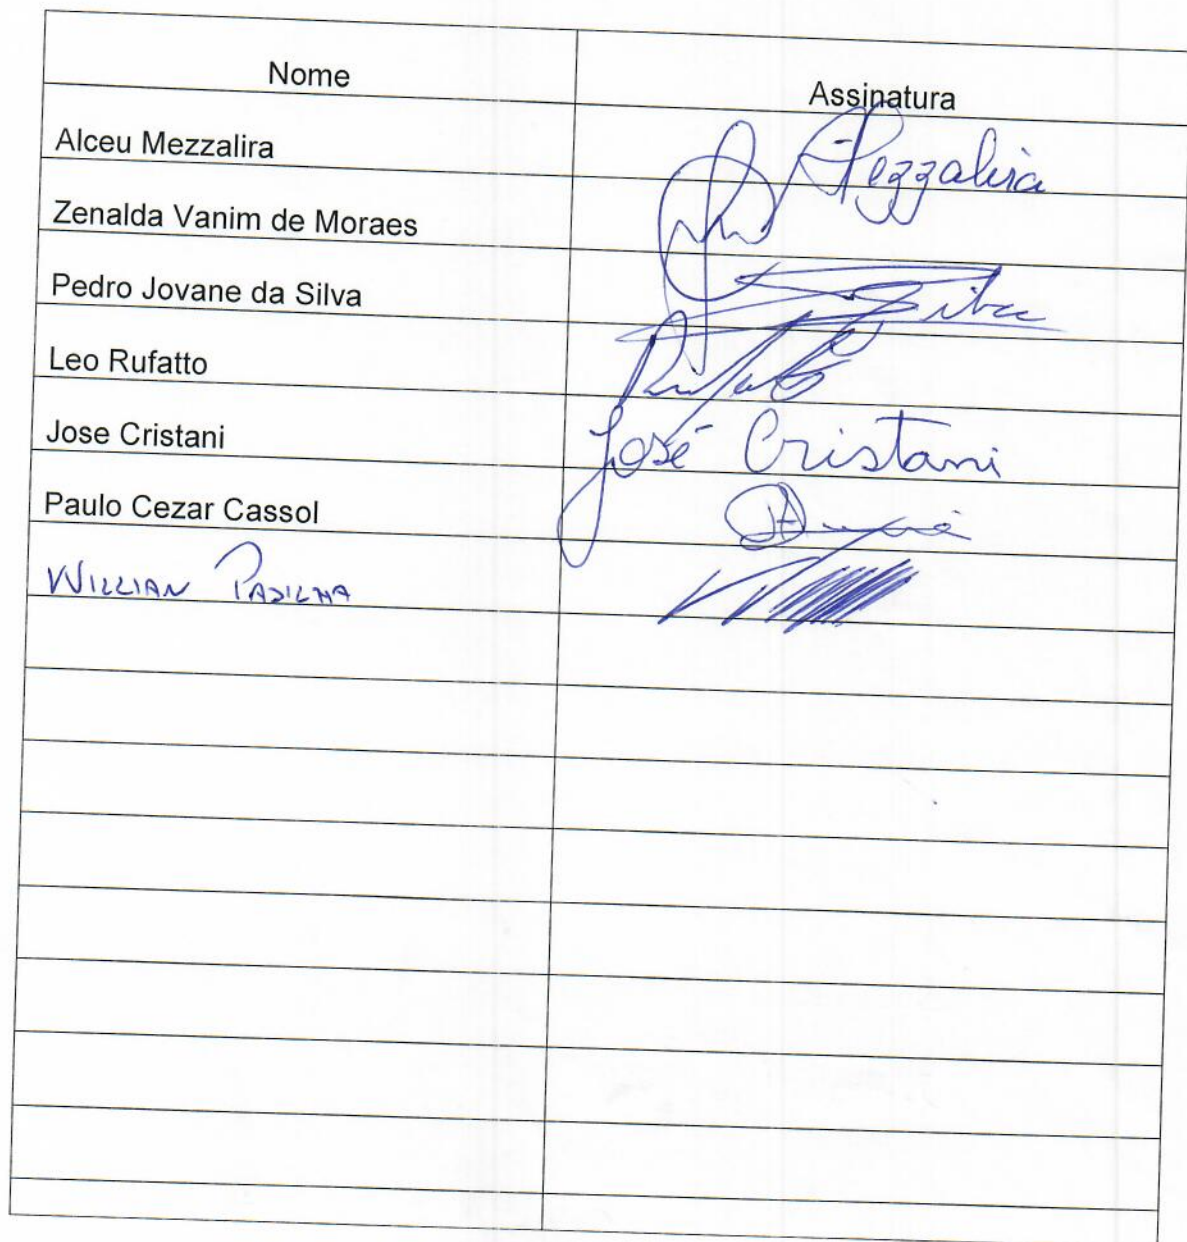 Nome Assinatura
Alceu Mezzalira Mezzalira
Zenalda Vanim de Moraes
Pedro Jovane da Silva Silva
Leo Rufatto Rufatto
Jose Cristani José Cristani
Paulo Cezar Cassol
WILLIAN PADILHA